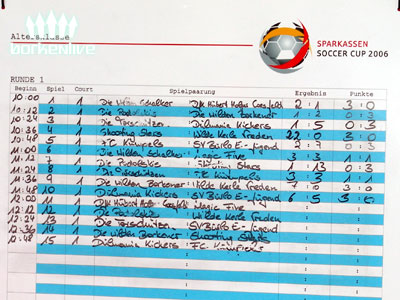 Altersklasse
borkenlive
SPARKASSEN
SOCCER CUP 2006
RUNDE 1
Beginn Spiel Court Spielpaarung Ergebnis Punkte
10:00 1 1 Die Schalker DJK Coesfeld 2 : 1 3 : 0
10:12 2 1 Die : Die wilden Borkener 1 : 2 0 : 3
10:24 3 1 Die Torschützen : Dilmania Kickers 1 : 5 0 : 3
10:36 4 1 Shooting Stars : Wilde Kerle Greden 0 3 : 0
10:48 5 1 FC Kümpels : SV Bürlo E-Jugend 2 : 7 0 : 3
11:00 6 1 Die Schalker : Magic Five 3 : 3 1 : 1
11:12 7 1 Die : Stars 1 : 13 0 : 3
11:24 8 1 Die Torschützen : FC Kümpels 3 : 1 3 : 0
11:36 9 1 Die wilden Borkener : Wilde Kerle Greden 7 : 0 3 : 0
11:48 10 1 Dilmania Kickers : SV Bürlo E-Jugend 6 : 5 3 : 0
12:00 11 1 DJK Coesfeld : Magic Five :
12:12 12 1 Die : Wilde Kerle Greden :
12:24 13 1 Die Torschützen : SV Bürlo E-Jugend :
12:36 14 1 Die wilden Borkener : Shooting Stars :
12:48 15 1 Dilmania Kickers : FC Kümpels :